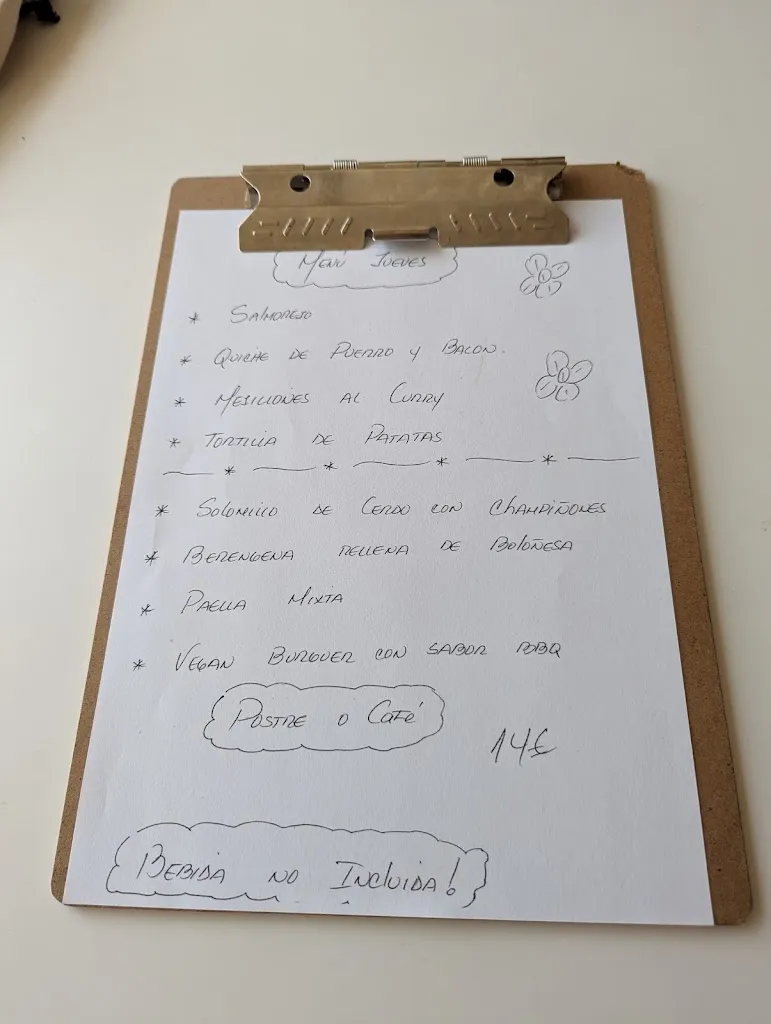 Menú Jueves
* Salmorejo
* Quiche de Puerro y Bacon.
* Mejillones al Curry
* Tortilla de Patatas
* Solomillo de Cerdo con Champiñones
* Berengena rellena de Boloñesa
* Paella Mixta
* Vegan Burguer con sabor BBQ
Postre o Café
14€
Bebida no Incluida!